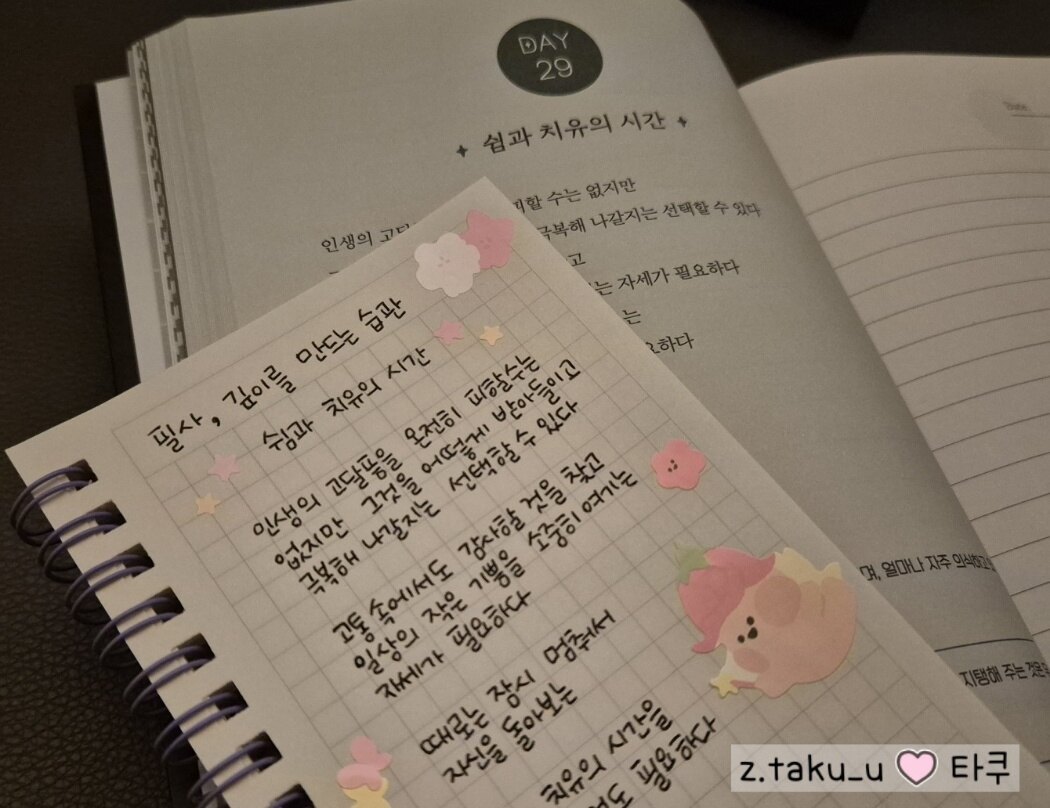 DAY
29
쉼과 치유의 시간
피할 수는 없지만
인생의 고달
극복해 나갈지는 선택할 수 있다
고
는 자세가 필요하다
는
요하다
Date
필사, 깊이를 만드는 습관
쉼과 치유의 시간
인생의 고달픔을 온전히 피할수는
없지만 그것을 어떻게 받아들이고
극복해 나갈지는 선택할 수 있다
고통 속에서도 감사할 것을 찾고
일상의 작은 기쁨을 소중히 여기는
자세가 필요하다
때로는 잠시 멈춰서
자신을 돌아보는
치유의 시간을
필요하다
며, 얼마나 자주 의식하고
지탱해 주는 것은
z.taku_u 🩷 타쿠